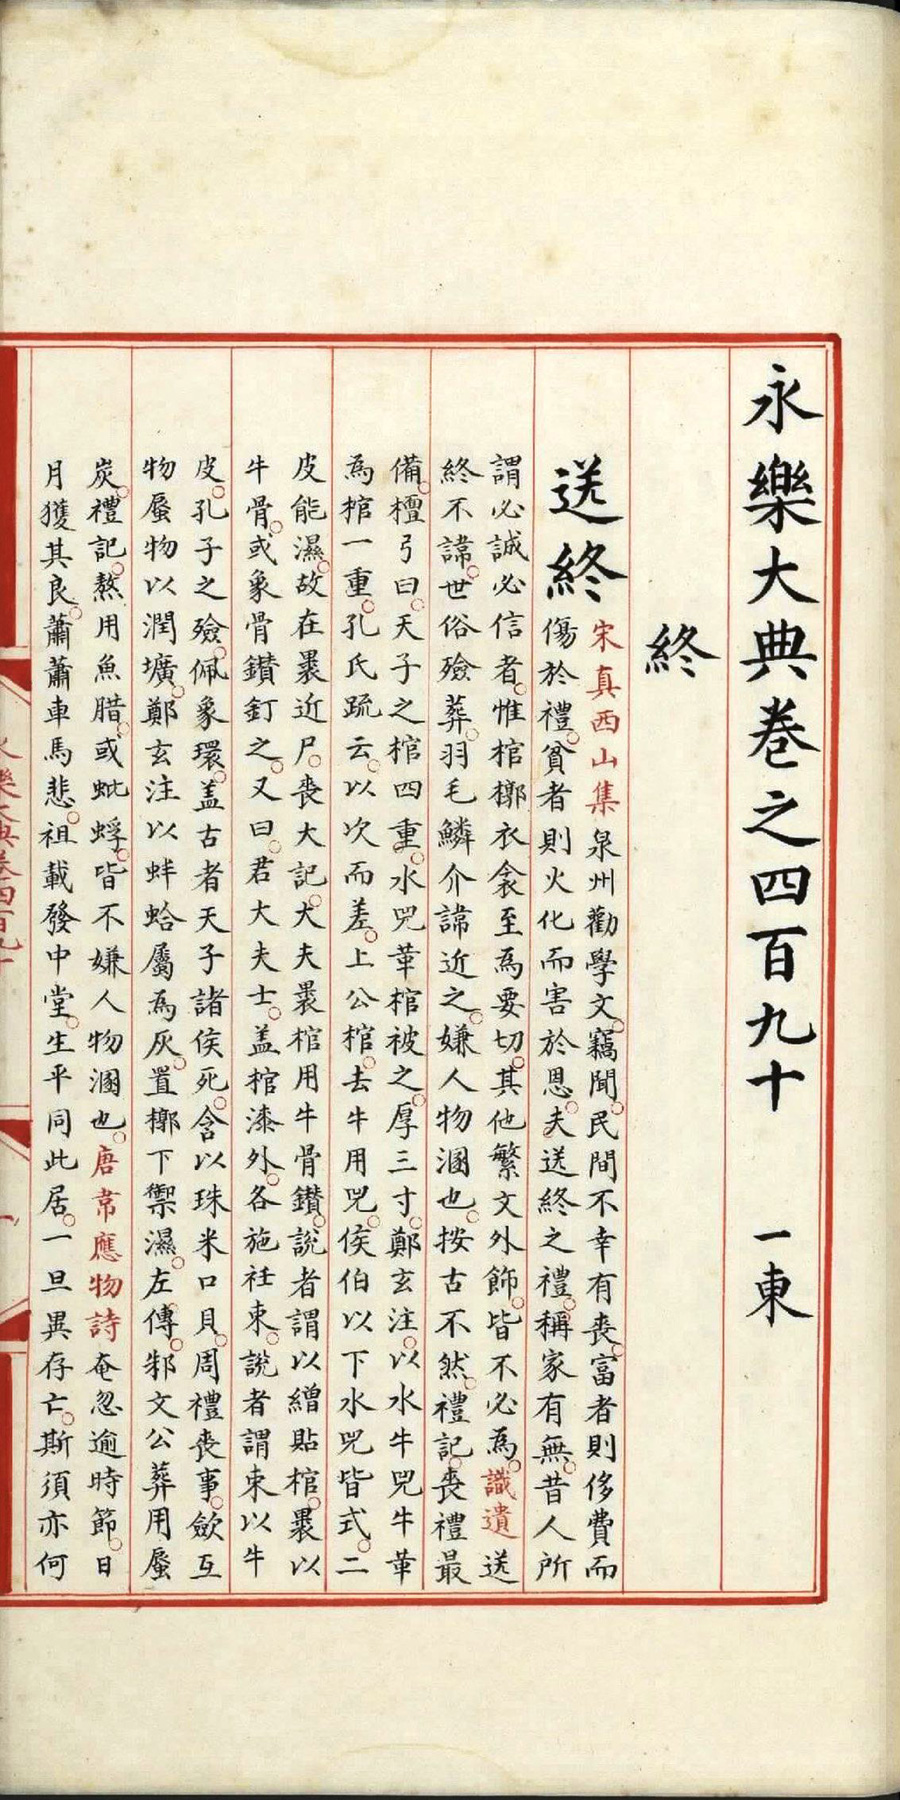 永樂大典卷之四百九十 一東
終
送終
宋真西山集泉州勸學文竊聞民間不幸有喪富者則侈費而
傷於禮貧者則火化而害於恩夫送終之禮稱家有無昔人所
謂必誠必信者惟棺槨衣衾至為要切其他繁文外飾皆不必為識遺送
終不諱世俗殮葬羽毛鱗介諱近之嫌人物溷也按古不然禮記喪禮最
備檀弓曰天子之棺四重水兕革棺被之厚三寸鄭玄注以水牛兕牛革
為棺一重孔氏疏云以次而差上公棺去牛用兕侯伯以下水兕皆式二
皮能濕故在裏近尸喪大記大夫裏棺用牛骨鑽說者謂以繒貼棺裏以
牛骨或象骨鑽釘之又曰君大夫士蓋棺漆外各施衽束說者謂束以牛
皮孔子之殮佩象環蓋古者天子諸侯死含以珠米口貝周禮喪事斂互
物蜃物以潤壙鄭玄注以蚌蛤屬為灰置槨下禦濕左傳邾文公葬用蜃
炭禮記熬用魚腊或蚍蜉皆不嫌人物溷也唐韋應物詩奄忽逾時節日
月獲其良蕭蕭車馬悲祖載發中堂生平同此居一旦異存亡斯須亦何
永樂大典卷四百九十